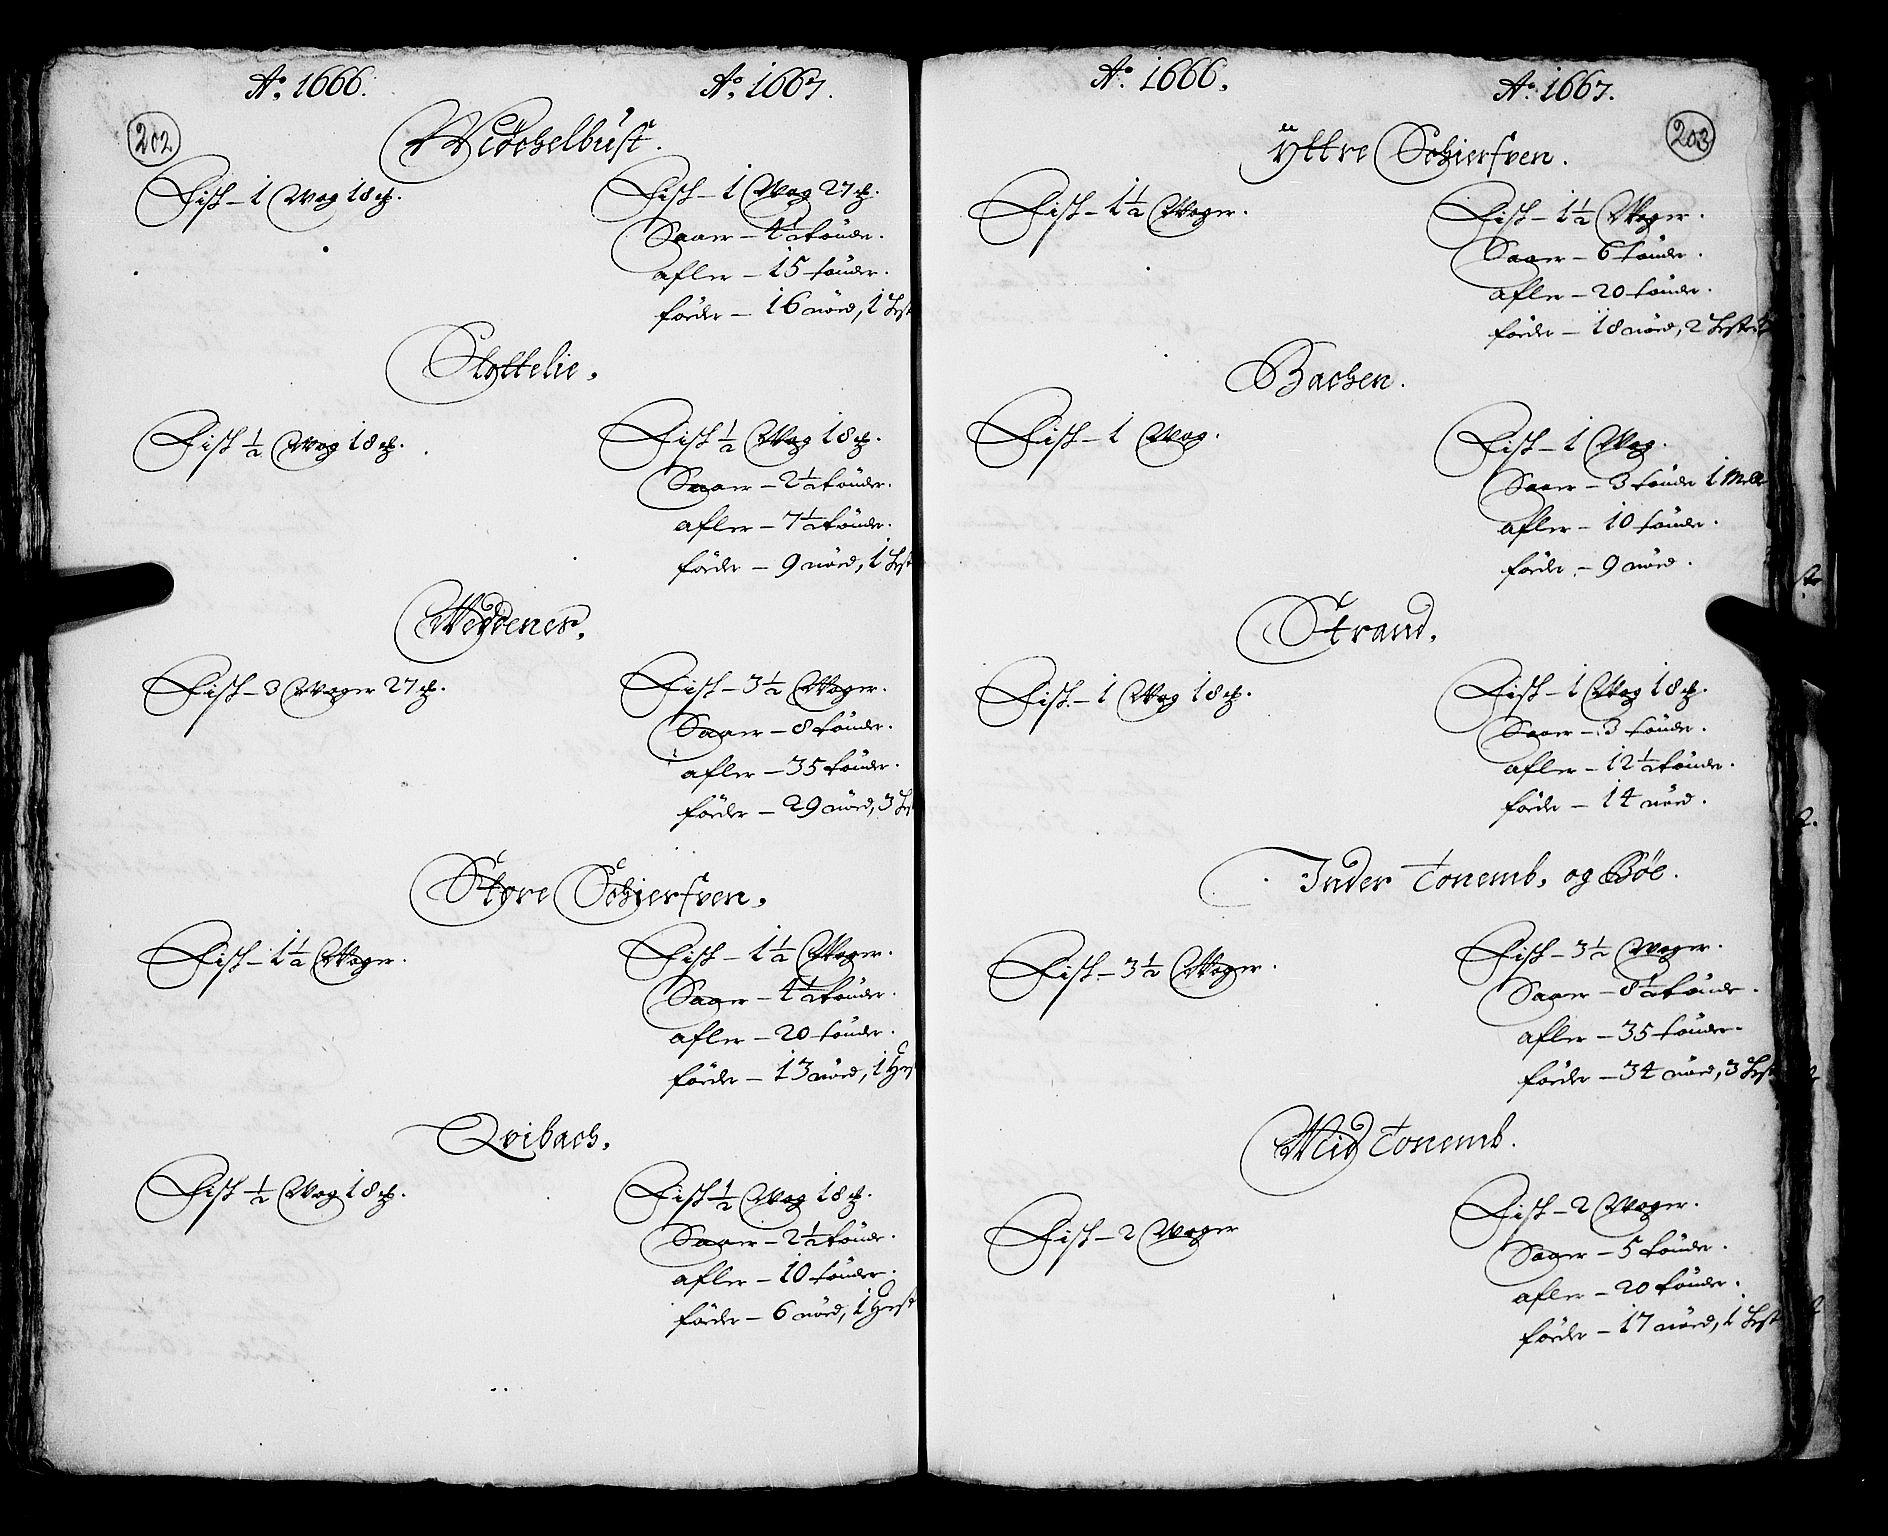 Ao. 1666. Ao. 1667.
202
Widschelbust.
Fisk - 1 Wog 18 ℔. Fisk - 1 Wog 27 ℔.
Saaer - 4½ tönde.
afler - 15 tönder.
förder - 16 nöed, 1 Hest
Slottelie.
Fisk ½ Wog 18 ℔. Fisk ½ Wog 18 ℔.
Saaer - 2½ tönder.
afler - 7½ tönder.
förder - 9 nöed, 1 Hest
Weddenes.
Fisk - 3 Woger 27 ℔. Fisk - 3½ Woger.
Saaer - 8 tönder.
afler - 35 tönder.
förder - 29 nöed, 3
Store Schierfven.
Fisk - 1½ Woger. Fisk - 1½ Woger.
Saaer - 4½ tönder.
afler - 20 tönder.
förder - 13 nöed, 1 Hest
Qvibach.
Fisk ½ Wog 18 ℔. Fisk ½ Wog 18 ℔.
Saaer - 2½ tönde.
afler - 10 tönder.
förder - 6 nöed, 1 Hest
Ao. 1666. Ao. 1667.
203
Ÿttre Schierfven.
Fisk - 1½ Woger. Fisk - 1½ Woger.
Saaer - 6 tönde.
afler - 20 tönder.
förder - 18 nöed, 2 Heste
Bachen.
Fisk - 1 Wog. Fisk - 1 Wog.
Saaer - 3 tönde 1 Melle
afler - 10 tönder.
förder - 9 nöed.
Strand.
Fisk - 1 Wog 18 ℔. Fisk - 1 Wog 18 ℔.
Saaer - 3 tönde.
afler - 12½ tönder.
förder - 14 nöed.
Inder Tonemb. og Böe.
Fisk - 3½ Woger. Fisk - 3½ woger.
Saaer - 8½ tönde.
afler - 35 tönder.
förder - 34 nöed, 3 Hest
Mid Tonemb.
Fisk - 2 Woger Fisk - 2 Woger.
Saaer - 5 tönder.
afler - 20 tönder.
förder - 17 nöed, 1 Hest